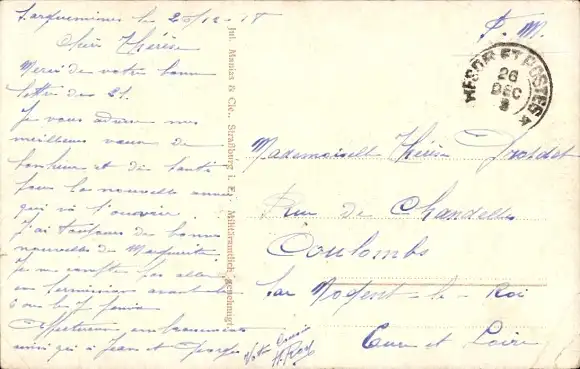 Sarguemines le 25/12-18
Chère Thérèse
Merci de votre bonne
lettre du 21.
Je vous adresse mes
meilleurs vœux de
bonheur et de santé
pour la nouvelle année
qui va s'ouvrir
J'ai toujours de bonnes
nouvelles de Marguerite
Je ne compte pas aller
en permission avant le
6 ou le 7 janvier
ainsi qu'à Jean et Georges
Votre Cousin
H. Roy
Jul. Manias & Cie., Straßburg i. E. Militäramtlich genehmigt.
F. M.
TRESOR ET POSTES
26
DEC
Mademoiselle Thérèse
Rue de Chandelles
Coulombs
par Nogent-le-Roi
Eure et Loire